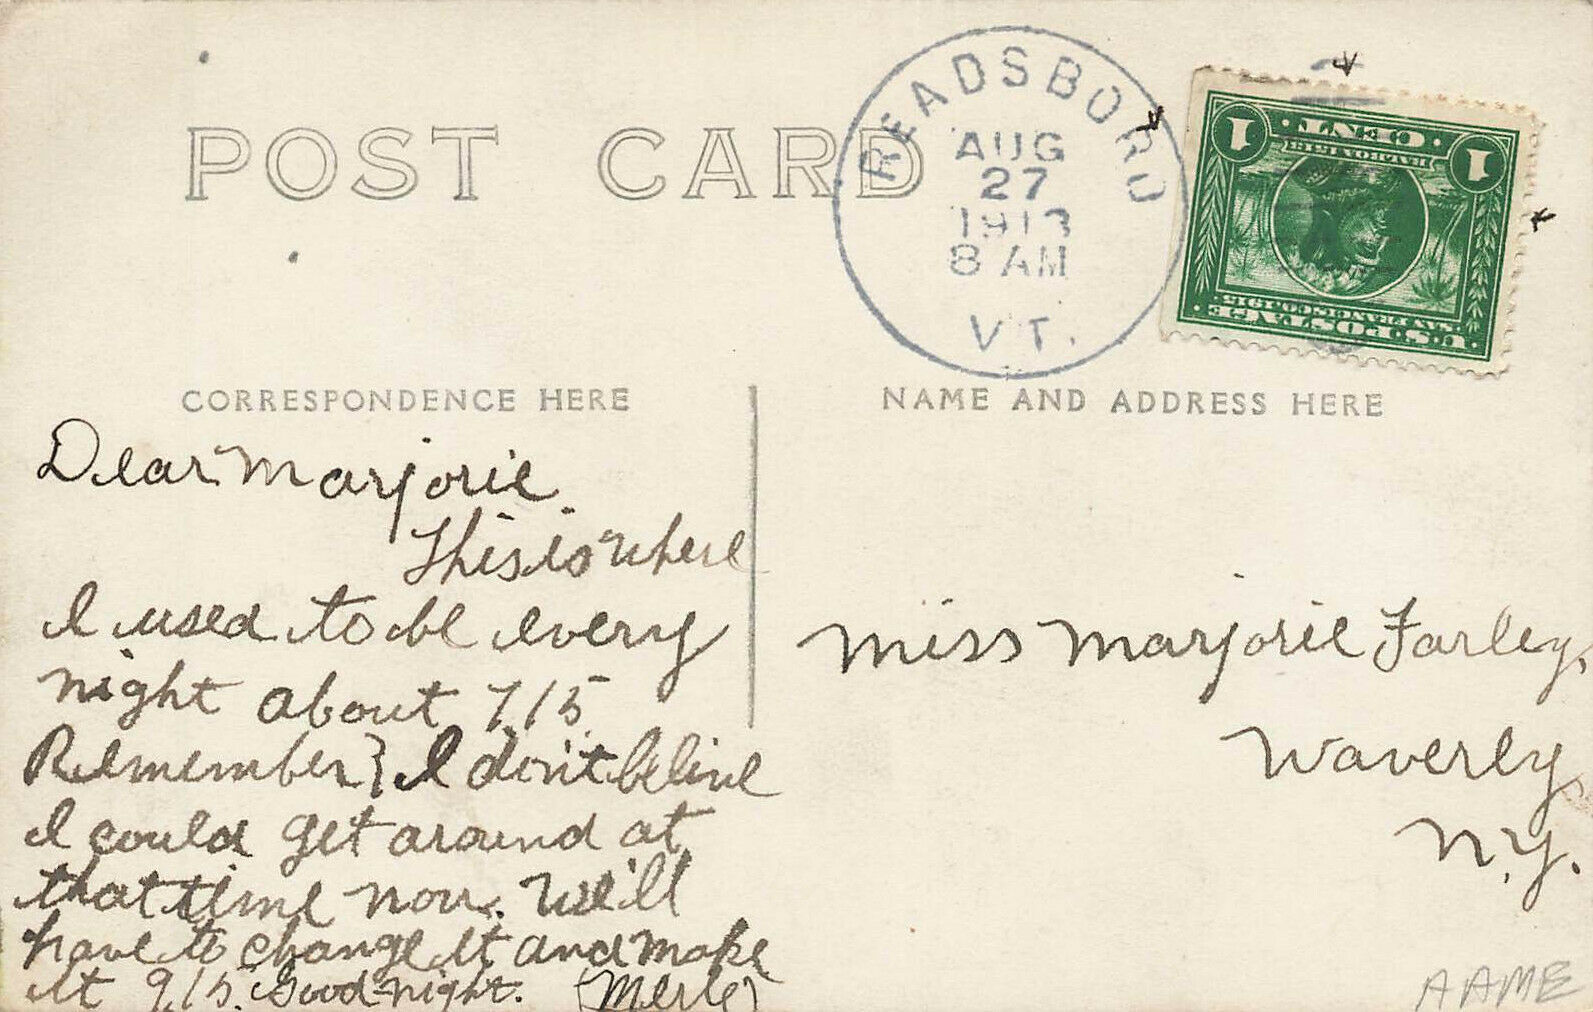 POST CARD
READSBORO
AUG
27
1913
8 AM
VT.
1 CENT 1
BALBOA 1513
SAN FRANCISCO 1915
U.S. POSTAGE
CORRESPONDENCE HERE
NAME AND ADDRESS HERE
Dear Marjorie
This is where
I used to be every
night about 7/15
Remember} I don't belive
I could get around at
that time now. We'll
have to change it and make
it 9/15. Good-night. (Merle)
Miss Marjorie Farley,
Waverly
N.Y.
AAME